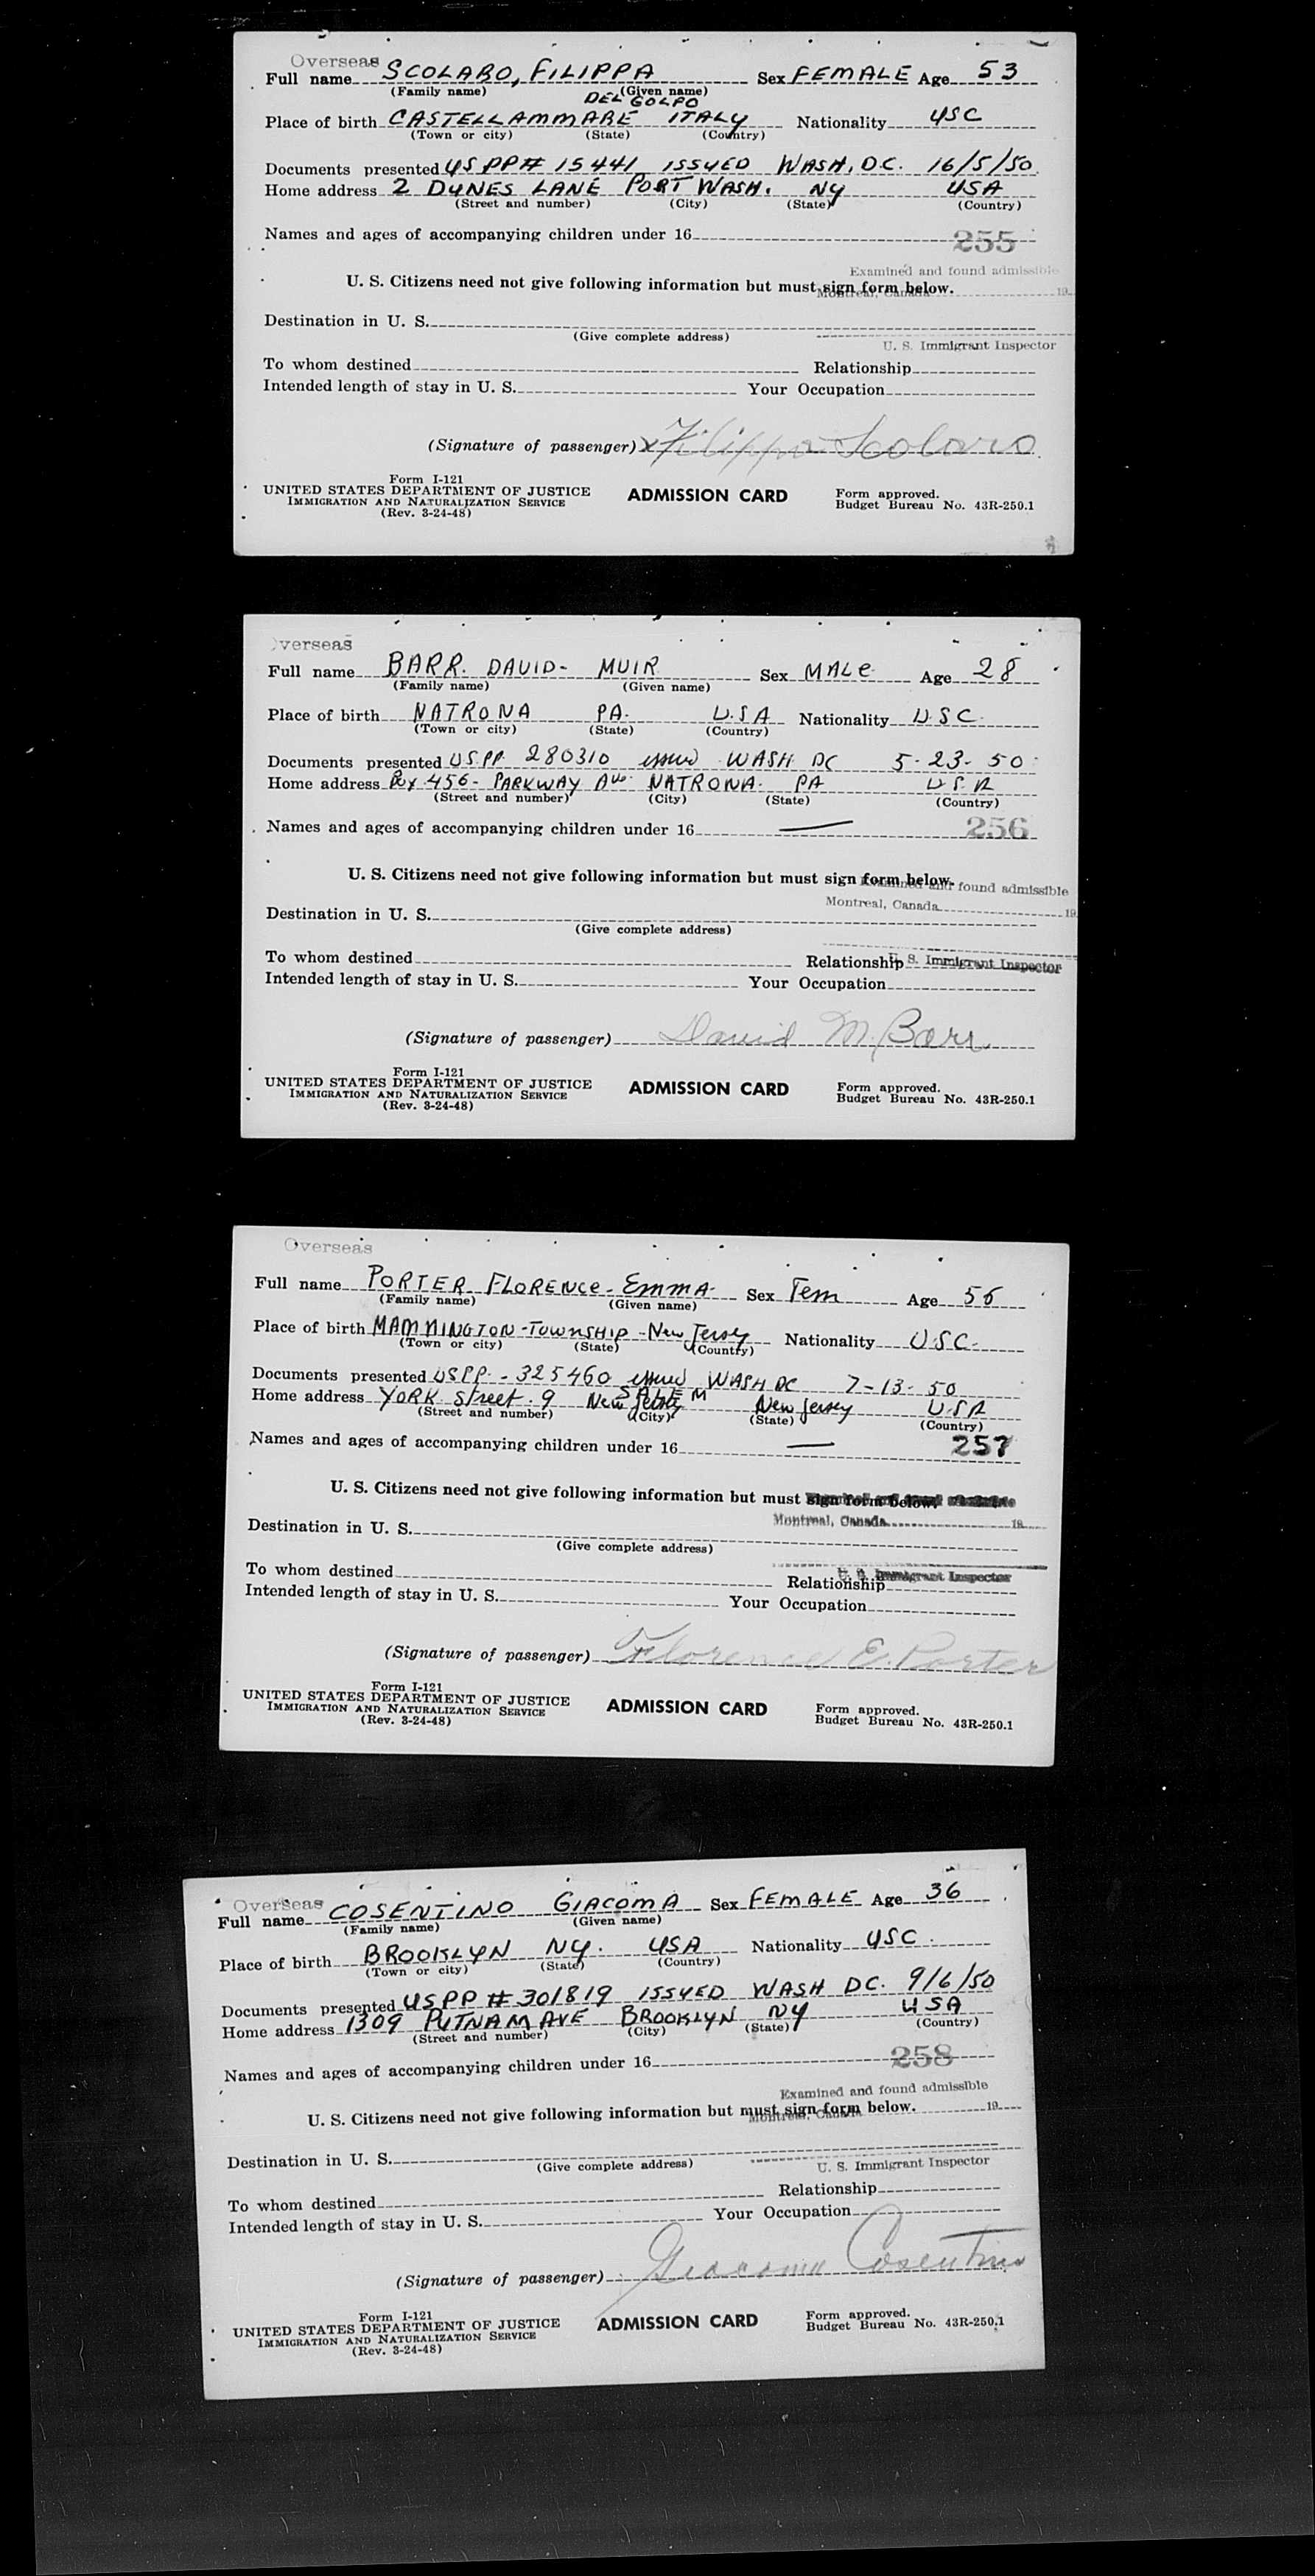 Overseas
Full name SCOLARO, FILIPPA Sex FEMALE Age 53
(Family name) (Given name)
DEL GOLPO
Place of birth CASTELLAMMARE ITALY Nationality USC
(Town or city) (State) (Country)
Documents presented US PP# 15441 ISSUED WASH, D.C. 16/5/50
Home address 2 DUNES LANE PORT WASH. NY USA
(Street and number) (City) (State) (Country)
Names and ages of accompanying children under 16 255
Examined and found admissible
U. S. Citizens need not give following information but must sign form below.
Montreal, Canada 19
Destination in U. S.
(Give complete address)
U. S. Immigrant Inspector
To whom destined Relationship
Intended length of stay in U. S. Your Occupation
(Signature of passenger) x Filippa Scolaro
Form I-121
UNITED STATES DEPARTMENT OF JUSTICE ADMISSION CARD Form approved.
IMMIGRATION AND NATURALIZATION SERVICE Budget Bureau No. 43R-250.1
(Rev. 3-24-48)
Overseas
Full name BARR. DAVID- MUIR Sex MALE Age 28
(Family name) (Given name)
Place of birth NATRONA PA. U.S.A Nationality U.S.C.
(Town or city) (State) (Country)
Documents presented U.S.PP. 280310 issued WASH DC 5-23-50
Home address Box 456- PARKWAY Ave NATRONA. PA U.S.A
(Street and number) (City) (State) (Country)
Names and ages of accompanying children under 16 — 256
U. S. Citizens need not give following information but must sign form below.
Examined and found admissible
Montreal, Canada 19
Destination in U. S.
(Give complete address)
To whom destined Relationship
U. S. Immigrant Inspector
Intended length of stay in U. S. Your Occupation
(Signature of passenger) David M. Barr
Form I-121
UNITED STATES DEPARTMENT OF JUSTICE ADMISSION CARD Form approved.
IMMIGRATION AND NATURALIZATION SERVICE Budget Bureau No. 43R-250.1
(Rev. 3-24-48)
Overseas
Full name PORTER FLORENCE- Emma Sex Fem Age 56
(Family name) (Given name)
Place of birth MANNINGTON-TOWNSHIP-New Jersey Nationality U.S.C.
(Town or city) (State) (Country)
Documents presented USPP.- 325460 issued WASH DC 7-13-50
SALEM
Home address YORK Street. 9 New Jersey New Jersey U.S.A
(Street and number) (City) (State) (Country)
Names and ages of accompanying children under 16 — 257
U. S. Citizens need not give following information but must sign form below.
Montreal, Canada 19
Destination in U. S.
(Give complete address)
To whom destined Relationship
U. S. Immigrant Inspector
Intended length of stay in U. S. Your Occupation
(Signature of passenger) Florence E. Porter
Form I-121
UNITED STATES DEPARTMENT OF JUSTICE ADMISSION CARD Form approved.
IMMIGRATION AND NATURALIZATION SERVICE Budget Bureau No. 43R-250.1
(Rev. 3-24-48)
Overseas
Full name COSENTINO GIACOMA Sex FEMALE Age 36
(Family name) (Given name)
Place of birth BROOKLYN NY. USA Nationality USC.
(Town or city) (State) (Country)
Documents presented USPP #301819 ISSUED WASH DC. 9/6/50
Home address 1309 PUTNAM AVE BROOKLYN NY USA
(Street and number) (City) (State) (Country)
Names and ages of accompanying children under 16 258
Examined and found admissible
U. S. Citizens need not give following information but must sign form below.
Montreal, Canada 19
Destination in U. S.
(Give complete address)
U. S. Immigrant Inspector
To whom destined Relationship
Intended length of stay in U. S. Your Occupation
(Signature of passenger) Giacoma Cosentino
Form I-121
UNITED STATES DEPARTMENT OF JUSTICE ADMISSION CARD Form approved.
IMMIGRATION AND NATURALIZATION SERVICE Budget Bureau No. 43R-250.1
(Rev. 3-24-48)